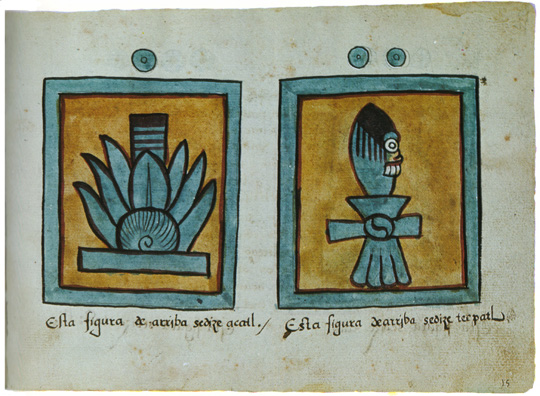 Esta figura de arriba sedize acatl./
Esta figura de arriba sedize tecpatl
15